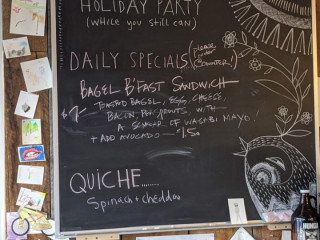 HOLIDAY PARTY
(WHILE YOU STILL CAN)
DAILY SPECIALS (please order @ counter!)
BAGEL B'FAST SANDWICH
TOASTED BAGEL, EGG, CHEESE,
BACON, PEA SPROUTS, WITH
A SCHMEAR OF WASABI MAYO.
+ ADD AVOCADO 1.50
QUICHE......
Spinach + cheddar